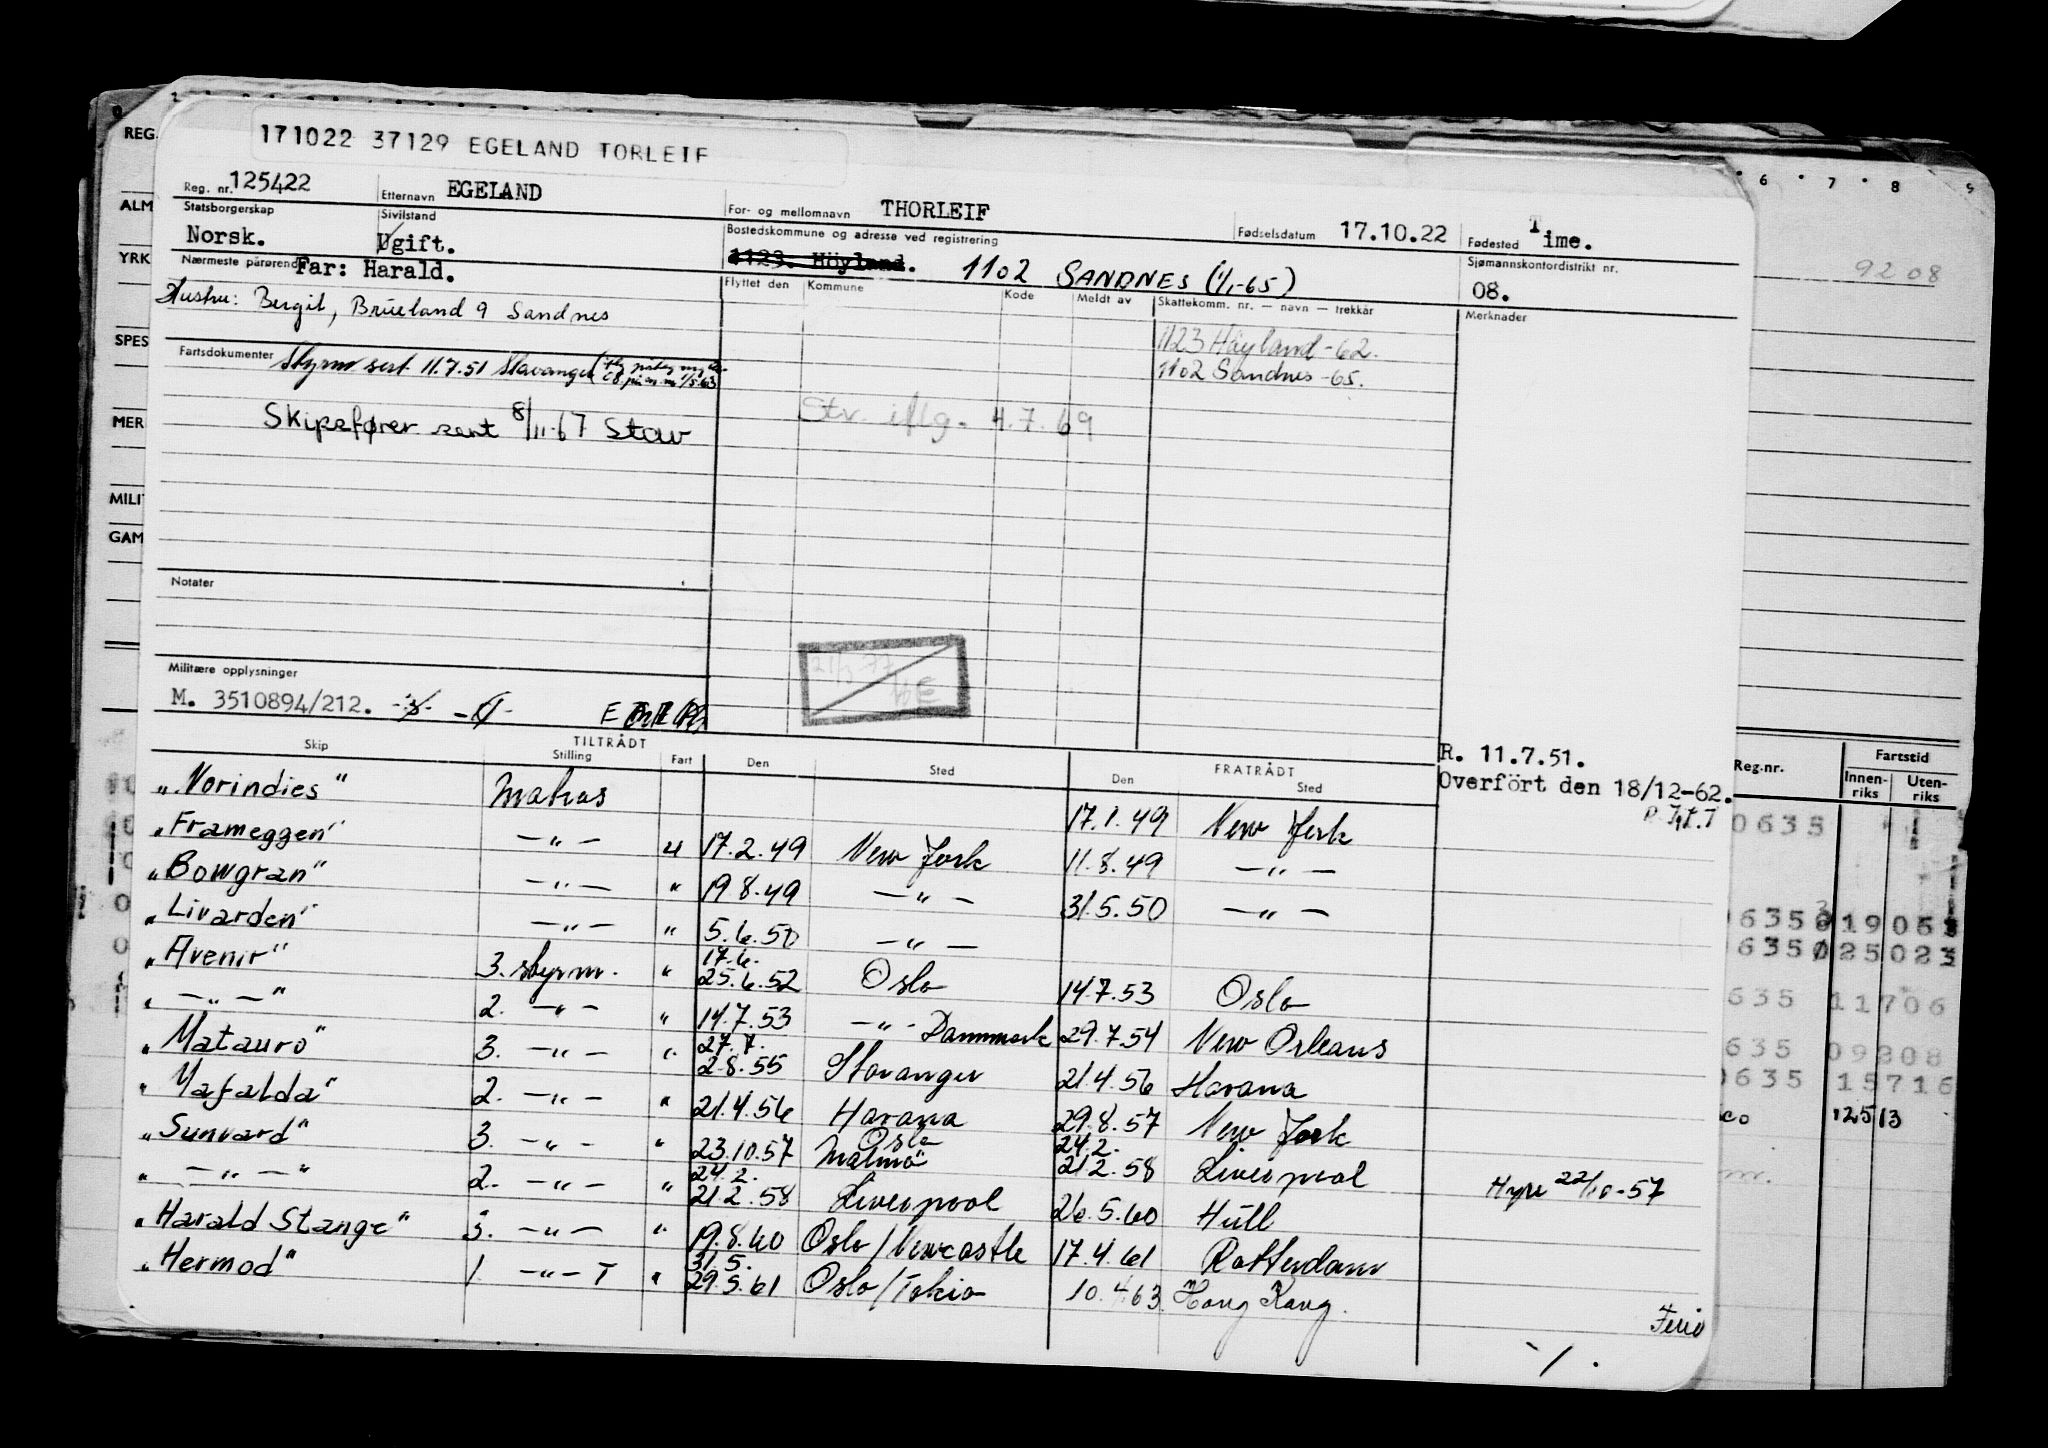 171022 37129 EGELAND TORLEIF
REG.
Reg. nr. 125422 Etternavn EGELAND For- og mellomnavn THORLEIF Fødselsdatum 17.10.22 Fødested Time.
ALM
Statsborgerskap Norsk. Sivilstand Ugift. Bostedskommune og adresse ved registrering 1123. Höyland. 1102 SANDNES (1/1-65) Sjømannskontordistrikt nr. 08.
9208
YRK
Nærmeste pårørende Far: Harald.
Hustru: Bergit, Brueland 9 Sandnes
Flyttet den Kommune Kode Meldt av Skattekomm. nr. — navn — trekkår Merknader
1123 Høyland -62.
1102 Sandnes -65.
SPES
Fartsdokumenter Styrm sert 11.7.51 Stavanger
MER
Skipsfører sert 8/11-67 Stav
Stv. iflg. 4.7.69
MILI
GAM
Notater
Militære opplysninger
M. 3510894/212.
Skip TILTRÅDT Stilling Fart Den Sted FRATRÅDT Den Sted
R. 11.7.51.
Overfört den 18/12-62.
Reg.nr. Fartstid Innen-riks Uten-riks
"Norindies" Matros 17.1.49 New York
"Frameggen" —"— u 17.2.49 New York 11.8.49 —"—
"Bowgran" —"— " 19.8.49 —"— 31.5.50 —"—
"Livarden" —"— " 5.6.50 —"—
"Avenir" 3. styrm. " 17.6. 25.6.52 Oslo 14.7.53 Oslo
"—"—" 2. —"— " 14.7.53 —"— Danmark 29.7.54 New Orleans
"Matauro" 3. —"— " 27.7. 2.8.55 Stavanger 21.4.56 Havana
"Mafalda" 2. —"— " 21.4.56 Havana 29.8.57 New York
"Sunvard" 3. —"— " 23.10.57 Oslo Malmö 24.2. 21.2.58 Liverpool Hyre 22/10-57
"—"—" 2. —"— " 24.2. 21.2.58 Liverpool 26.5.60 Hull
"Harald Stange" 3. —"— " 19.8.60 Oslo/Newcastle 17.4.61 Rotterdam
"Hermod" 1 —"— T " 31.5. 29.5.61 Oslo/Tokio 10.4.63. Hong Kong. Ferie
0635
635 11706
635 09208
0635 15716
12513